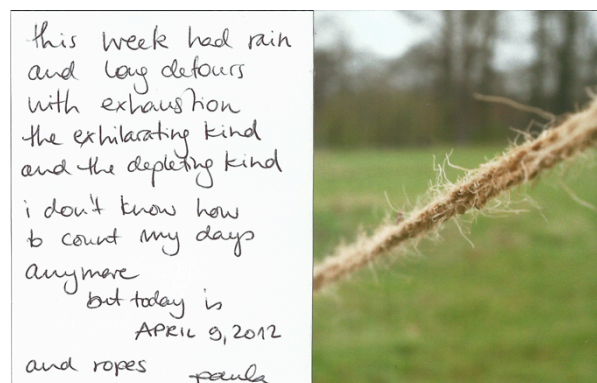 this week had rain
and long detours
with exhaustion
the exhilarating kind
and the depleting kind
i don't know how
to count my days
anymore
but today is
APRIL 9, 2012
and ropes
paula